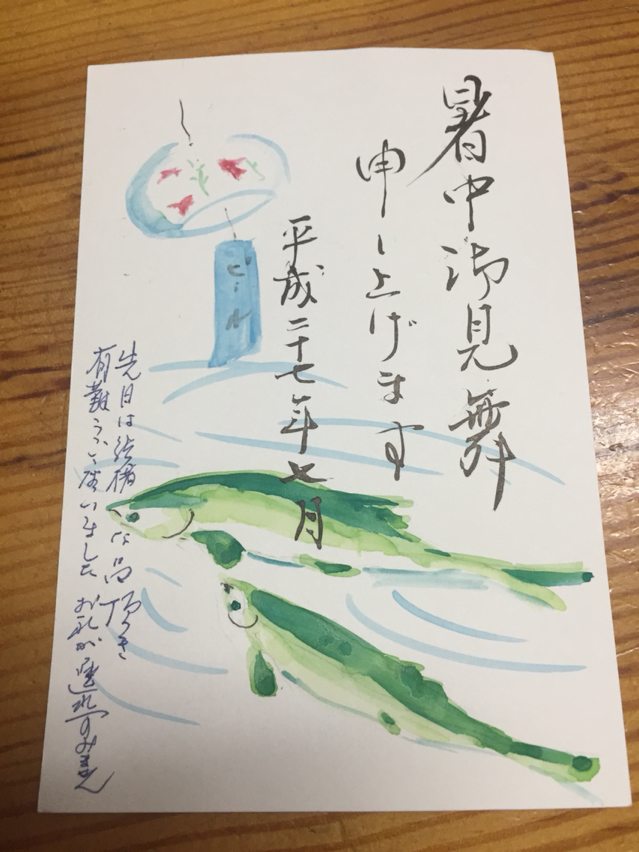 暑中御見舞
申し上げます
平成二十七年七月
ビール
先日は結構な品頂き
有難うございましたお礼が遅れすみません